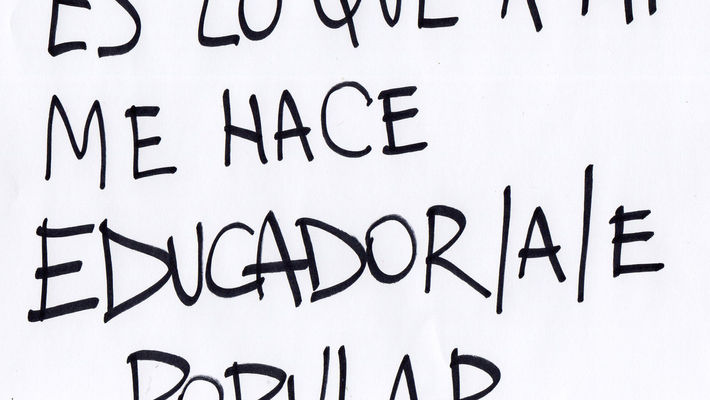 ES LO QUE A MI
ME HACE
EDUCADOR/A/E
POPULAR